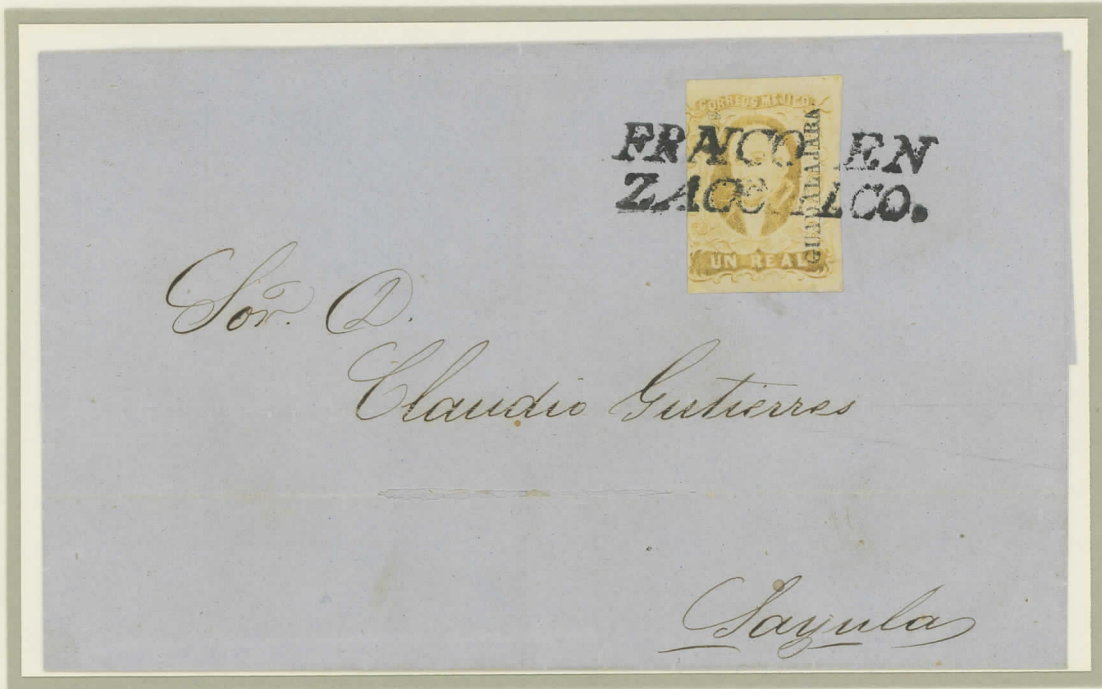 CORREOS MEJICO
GUADALAJARA
UN REAL
FRANCO EN
ZACOALCO.
Sor. D.
Claudio Gutierres
Sayula